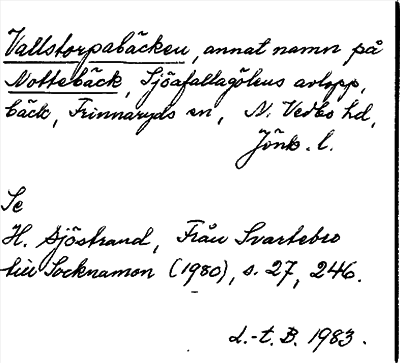 Vallstorpabäcken, annat namn på
Nottebäck, Sjöafallagölens avlopp,
bäck, Frinnaryds sn, N. Vedbo hd,
Jönk. l.
Se
H. Sjöstrand, Från Svartebro
till Socknamon (1980), s. 27, 246.
d.-t. B. 1983.